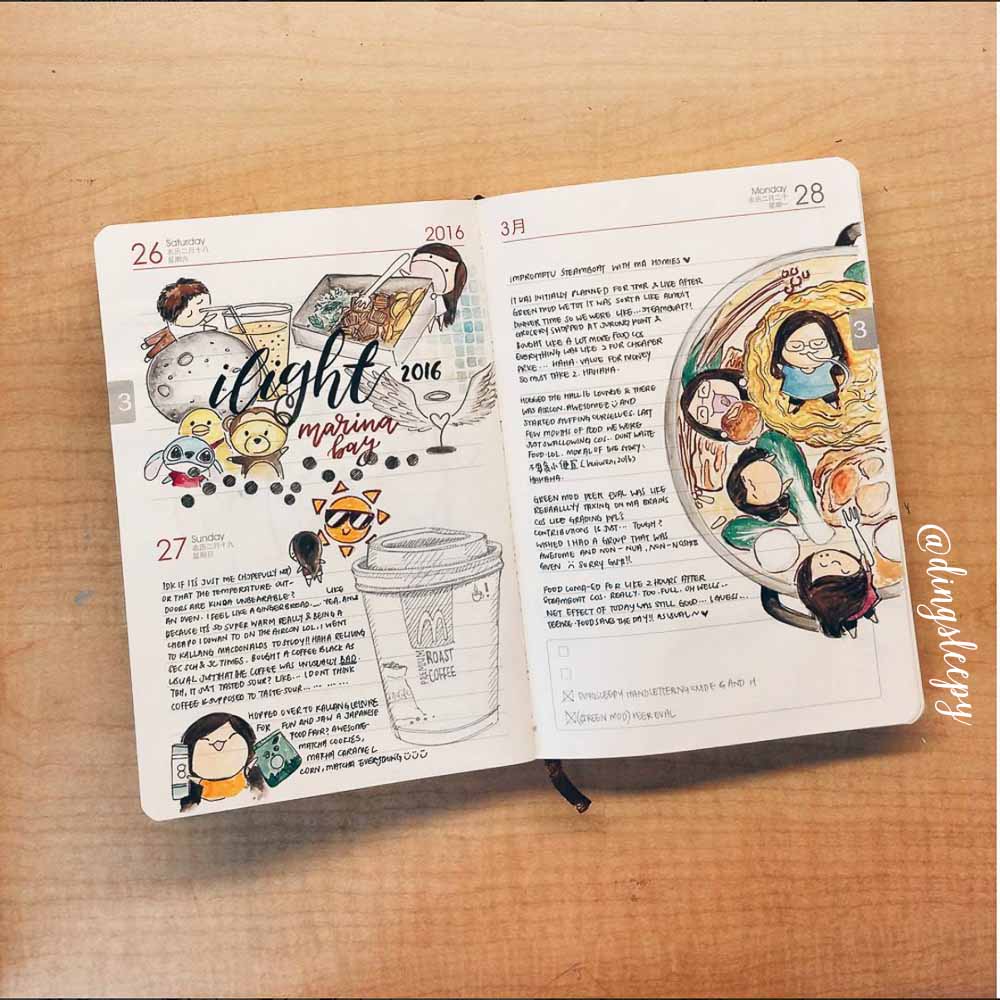 26 Saturday
农历二月十八
星期六
2016
ilight 2016
marina
bay
3
27 Sunday
农历二月十九
星期日
IDK IF ITS JUST ME (HOPEFULLY NOT)
OR THAT THE TEMPERATURE OUT-
DOORS ARE KINDA UNBEARABLE? LIKE
AN OVEN. I FEEL LIKE A GINGERBREAD._. YEA. AND
BECAUSE ITS SO SUPER WARM REALLY & BEING A
CHEAPO I DOWAN TO ON THE AIRCON LOL. I WENT
TO KALLANG MACDONALDS TO STUDY!! HAHA RELIVING
SEC SCH & JC TIMES. BOUGHT A COFFEE BLACK AS
USUAL JUST THAT THE COFFEE WAS UNUSUALLY BAD.
TBH, IT JUST TASTED SOUR? LIKE... I DONT THINK
COFFEE IS SUPPOSED TO TASTE SOUR... ... ... ...
PREMIUM
ROAST
COFFEE
HOPPED OVER TO KALLANG LEISURE
FOR FUN AND SAW A JAPANESE
FOOD FAIR? AWESOME-
MATCHA COOKIES,
MATCHA CARAMEL
CORN, MATCHA EVERYTHING
8
3月
Monday 28
农历二月二十
星期一
IMPROMPTU STEAMBOAT WITH MA HOMIES ♥
IT WAS INITIALLY PLANNED FOR TMR & LIKE AFTER
GREEN MOD WE TOT IT WAS SORTA LIKE ALMOST
DINNER TIME SO WE WERE LIKE... STEAMBOAT?!
GROCERY SHOPPED AT JURONG POINT &
BOUGHT LIKE A LOT MORE FOOD COS
EVERYTHING WAS LIKE 2 FOR CHEAPER
PRICE... HAHA. VALUE FOR MONEY
SO MUST TAKE 2. HAHAHA.
3
HOGGED THE HALL 16 LOUNGE & THERE
WAS AIRCON. AWESOMEZ AND
STARTED STUFFING OURSELVES. LAST
FEW MOUTHS OF FOOD WE WERE
JUST SWALLOWING COS.. DUNT WASTE
FOOD LOL. MORAL OF THE STORY:
不要贪小便宜 (2016)
HAHAHA.
GREEN MOD PEER EVAL WAS LIKE
REEAALLLYY TAXING ON MA BRAINS
COS LIKE GRADING PPL'S
CONTRIBUTIONS IS JUST... TOUGH?
WISHED I HAD A GROUP THAT WAS
AWESOME AND NON-NUA, NON-
GIVEN SORRY GUYS!!
FOOD COMA-ED FOR LIKE 2 HOURS AFTER
STEAMBOAT COS. REALLY. TOO. FULL. OH WELLS..
NET EFFECT OF TODAY WAS STILL GOOD... I GUESS...
TEEHEE. FOOD SAVES THE DAY!! AS USUAL ~ ♥
DINGSLEEPY HANDLETTERING GUIDE G AND H
(GREEN MOD) PEER EVAL
@dingsleepy